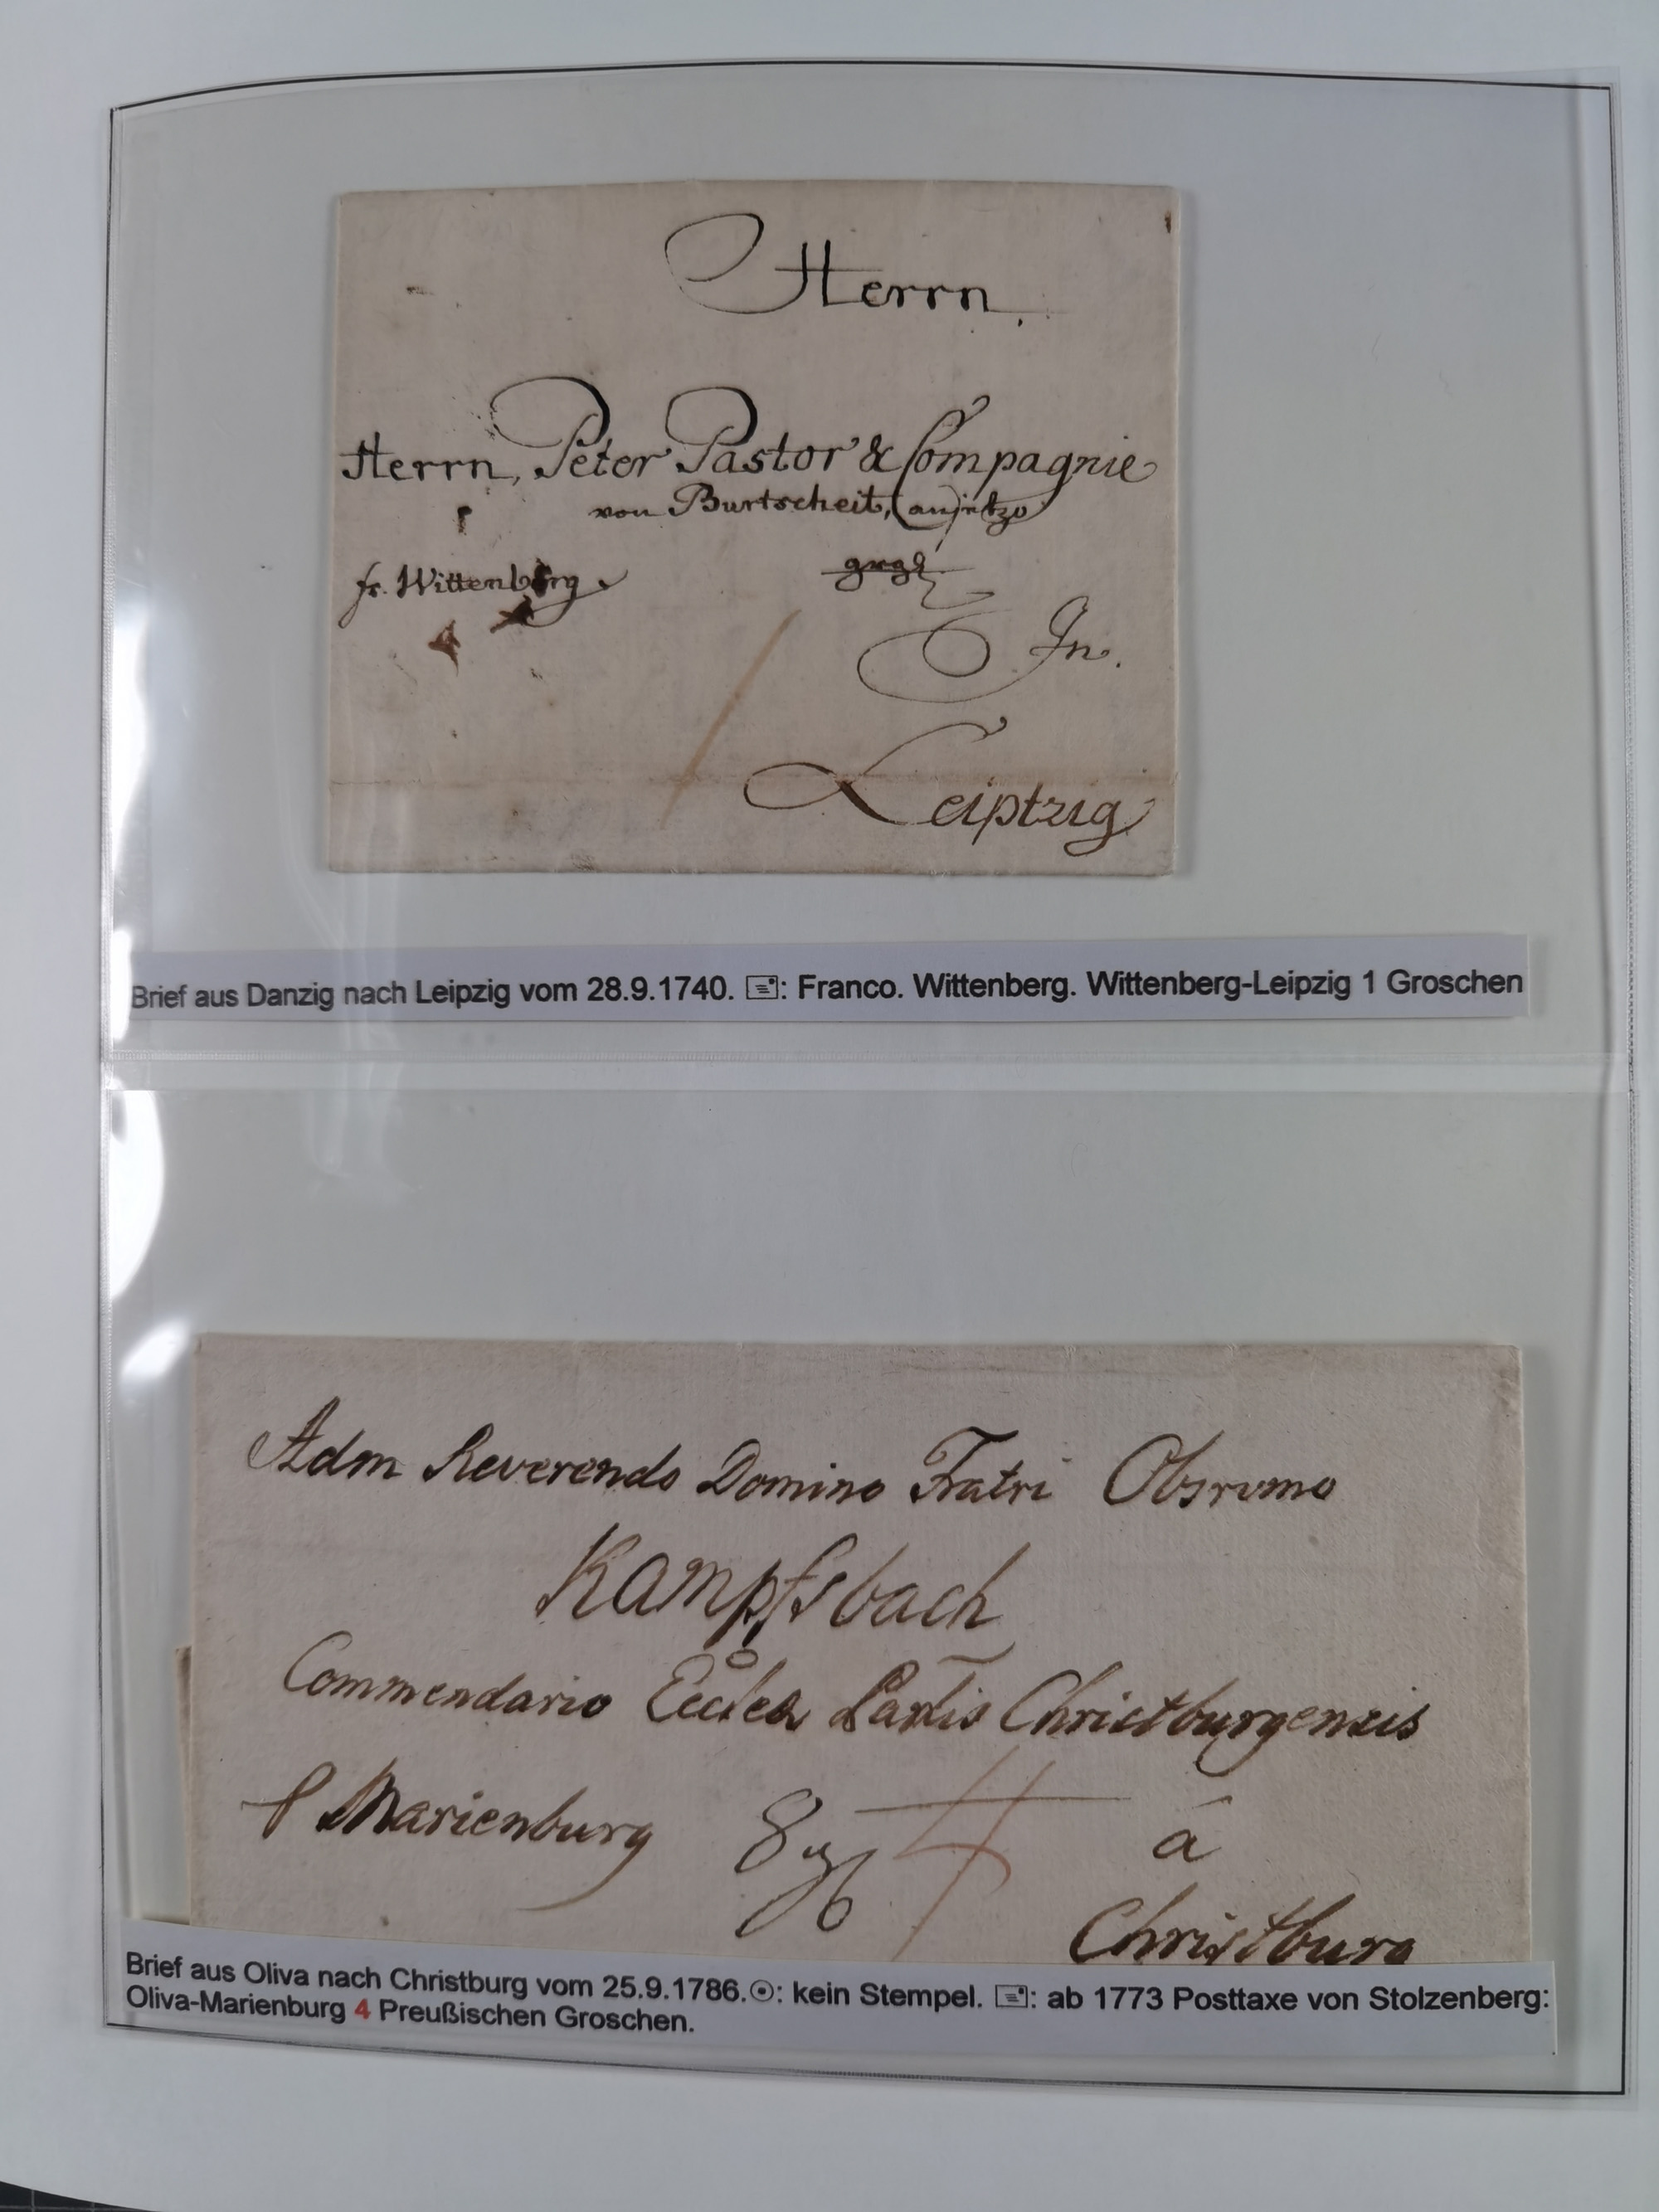 Herrn
Herrn, Peter Pastor & Compagnie
von Burtscheit, anjetzo
fr. Wittenberg
In.
Leiptzig
Brief aus Danzig nach Leipzig vom 28.9.1740. : Franco. Wittenberg. Wittenberg-Leipzig 1 Groschen
Adm Reverendo Domino Fratri Obsrvmo
Kampfsbach
Commendario Christburgensis
Marienburg 8 4 á
Christburg
Brief aus Oliva nach Christburg vom 25.9.1786.☉: kein Stempel. : ab 1773 Posttaxe von Stolzenberg:
Oliva-Marienburg 4 Preußischen Groschen.